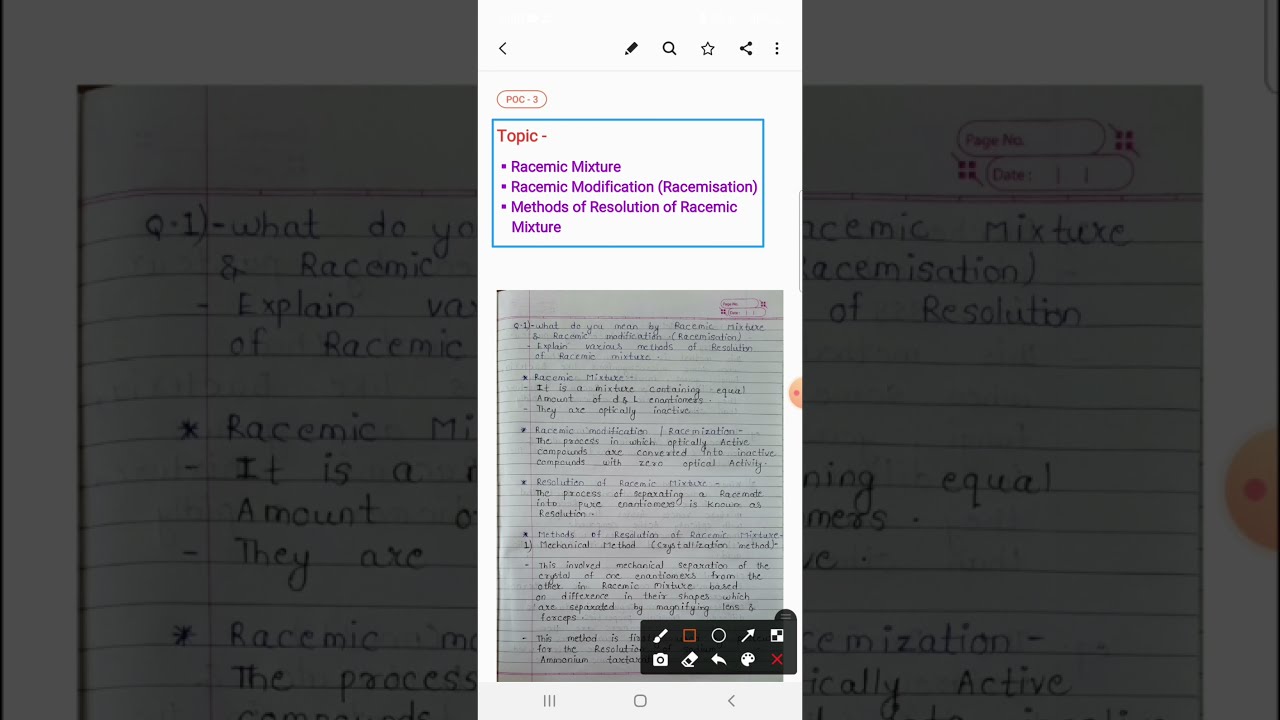 POC - 3
Topic -
▪ Racemic Mixture
▪ Racemic Modification (Racemisation)
▪ Methods of Resolution of Racemic
Mixture
Page No.
Date :
Q.1)-what do you mean by Racemic Mixture
& Racemic modification.(Racemisation)
- Explain various methods of Resolution
of Racemic mixture.
* Racemic Mixture:-
- It is a mixture containing equal
Amount of d & L enantiomers.
- They are optically inactive.
* Racemic modification / Racemization:-
The process in which optically Active
compounds are converted into inactive
compounds with zero optical Activity.
* Resolution of Racemic Mixture:-
The process of separating a Racemate
into pure enantiomers is known as
Resolution.
* Methods of Resolution of Racemic Mixture-
1) Mechanical Method (Crystallization method)-
- This involved mechanical separation of the
crystal of one enantiomers from the
other in Racemic Mixture based
on difference in their shapes which
are separated by magnifying lens &
forceps.
- This method is
for the Resolution
Ammonium
Page No.
Date :
Q.1)-what do yo
& Racemic
- Explain var
of Racemic
* Racemic Mi
- It is a
Amount
- They are
* Racemic mo
The process
compounds
acemic Mixture
acemisation)
of Resolution
ning equal
mers.
ve.
emization:-
ically Active